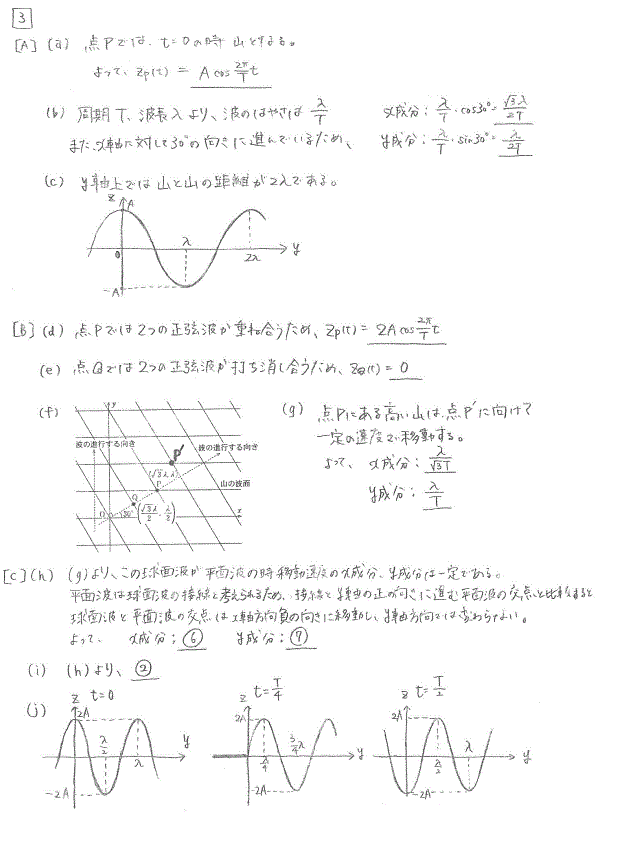 3
[A] (a) 点Pでは、t=0の時 山となる。
よって、Zp(t) = A cos 2π/T t
(b) 周期T、波長λより、波のはやさは λ/T
また、x軸に対して30°の向きに進んでいるため、
x成分: λ/T・cos30° = √3λ/2T
y成分: λ/T・sin30° = λ/2T
(c) y軸上では山と山の距離が2λである。
z A λ 0 2λ y -A
[B] (d) 点Pでは2つの正弦波が重ね合うため、Zp(t) = 2A cos 2π/T t
(e) 点Qでは2つの正弦波が打ち消し合うため、ZQ(t) = 0
(f)
y
波の進行する向き
波の進行する向き
P'
(√3λ, λ)
P
山の波面
Q
O 30° (√3λ/2, λ/2) x
(g) 点Pにある高い山は、点P'に向けて
一定の速度で移動する。
よって、x成分: λ/√3T
y成分: λ/T
[C] (h) (g)より、この球面波が平面波の時 移動速度のx成分、y成分は一定である。
平面波は球面波の接線と考えられるため、接線とy軸の正の向きに進む平面波の交点と比較すると
球面波と平面波の交点はx軸方向負の向きに移動し、y軸方向では変わらない。
よって、x成分: ⑥ y成分: ⑦
(i) (h)より、②
(j)
t=0 z 2A λ/2 λ y -2A
t=T/4 z 2A λ/4 3/4λ y -2A
t=T/2 z 2A λ/2 λ y -2A